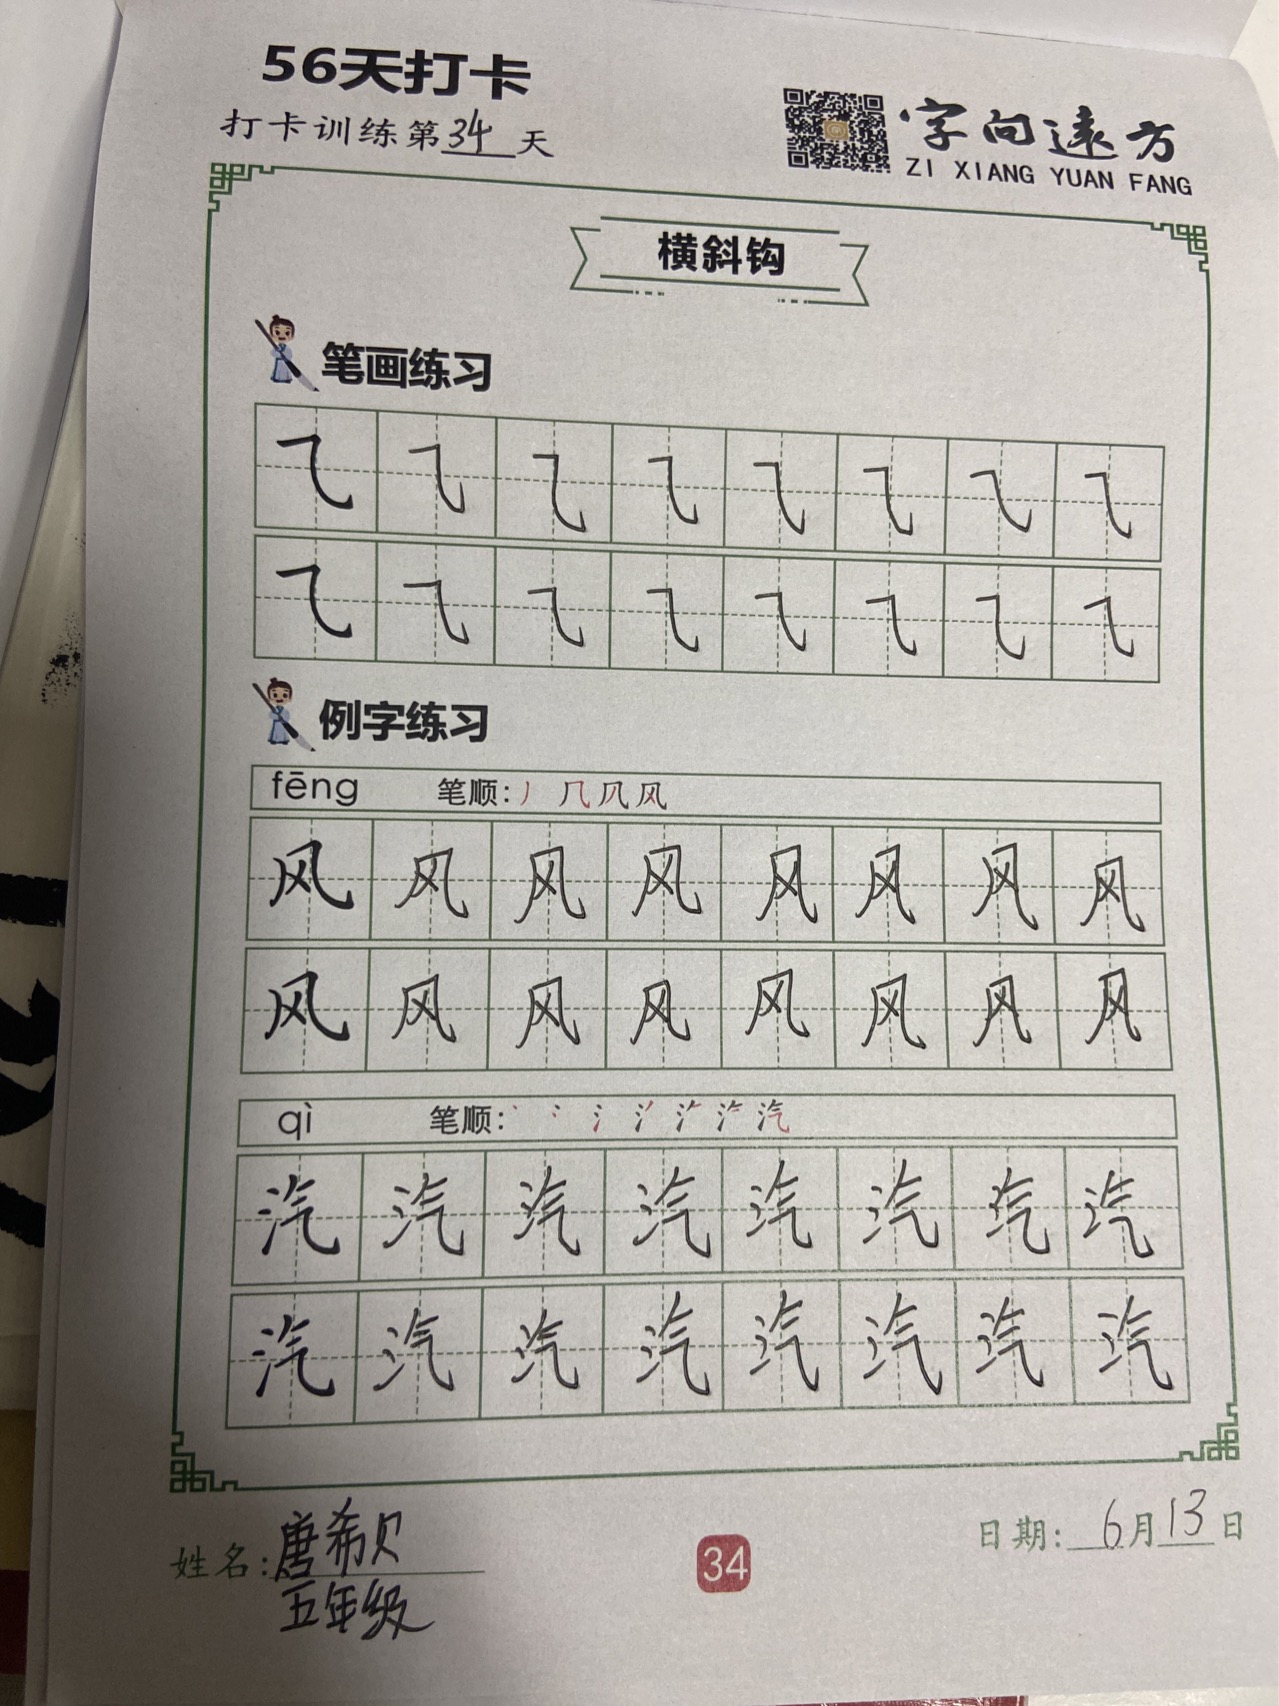 56天打卡
打卡训练第34天
字向遠方
ZI XIANG YUAN FANG
横斜钩
笔画练习
㇈ ㇈ ㇈ ㇈ ㇈ ㇈ ㇈ ㇈
㇈ ㇈ ㇈ ㇈ ㇈ ㇈ ㇈ ㇈
例字练习
fēng 笔顺: 丿 几 凨 风
风 风 风 风 风 风 风 风
风 风 风 风 风 风 风 风
qì 笔顺:
汽 汽 汽 汽 汽 汽 汽 汽
汽 汽 汽 汽 汽 汽 汽 汽
姓名: 唐希贝
五年级
34
日期: 6月13日